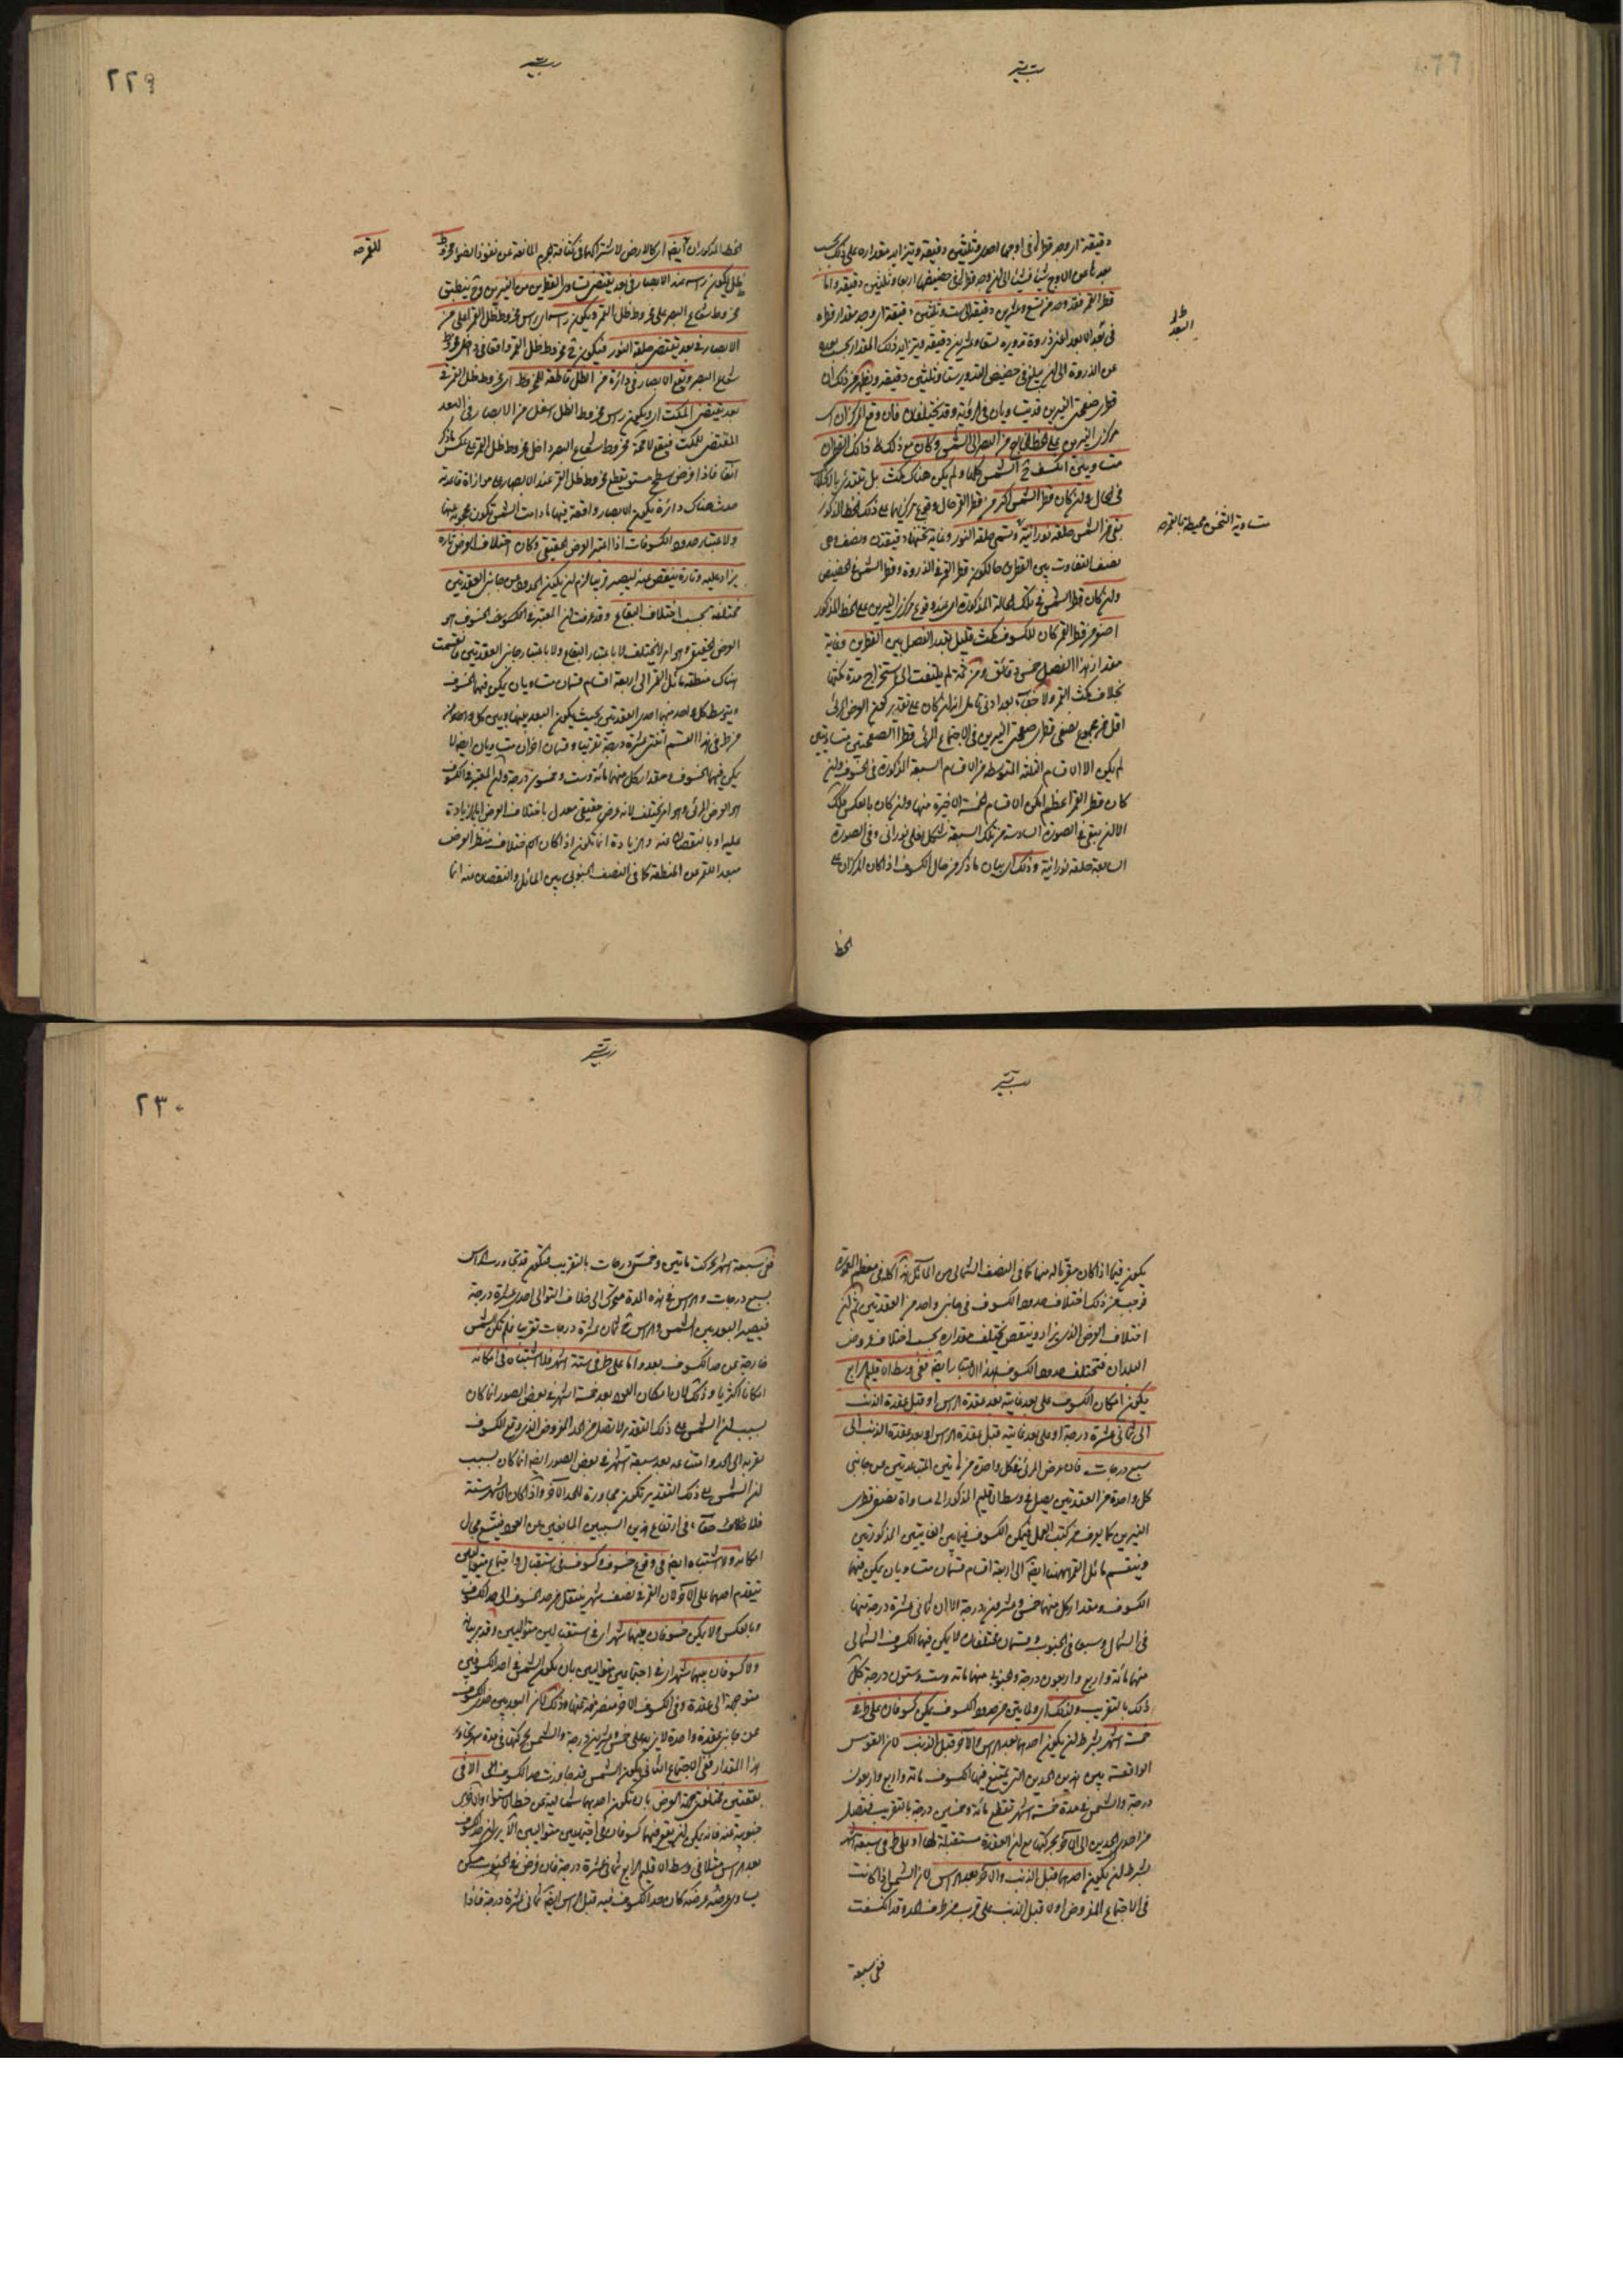 دقيقة اى وجد قطرها فى اوجها احدى وثلثين دقيقة ويتزايد مقداره على ذلك بحسب
بعدها عن الاوج شيئا فشيئا الى ان وجد قطرها فى حضيضها اربعا وثلثين دقيقة واما
قطر القمر فقد وجد من تسع وعشرين دقيقة الى ست وثلثين دقيقة اى وجد مقدار قطره
فى بعد الابعد اعنى ذروة تدويره تسعا وعشرين دقيقة ويتزايد ذلك المقدار بحسب بعده
البعد
عن الذروة الى ان يبلغ فى حضيض التدوير ستا وثلثين دقيقة ويظهر من ذلك ان
قطرى صفحتى النيرين قد يتساويان فى الرؤية وقد يختلفان فان وقع المركزان اى
مركزى النيرين على الخط الخارج من البصر الى الشمس وكان مع ذلك ذانك القطران
متساويين انكسف ح الشمس كلها ولم يكن هناك مكث بل تبتدئ بالانجلاء
فى الحال وان كان قطر الشمس اكبر من قطر القمر حال وقوع مركزيهما على ذلك الخط المذكور
متساوية الثخن محيطة بالقمر
بقى من الشمس حلقة نورانية وتسمى حلقة النور وغاية ثخنها دقيقتان ونصف وهى
نصف التفاوت بين القطرين حال كون قطر القمر فى الذروة وقطر الشمس فى الحضيض
وان كان قطر الشمس فى تلك الحالة المذكورة اى عند وقوع مركزى النيرين على الخط المذكور
اصغر من قطر القمر كان للكسوف مكث قليل بقدر الفصل بين القطرين وغاية
مقدار هذا الفصل خمس دقائق ومن ثمة لم يلتفت الى استخراج مدة مكثها
بخلاف مكث القمر ولا خفاء بعد ادنى تأمل انه ان كان على تقدير كون العرض المرئى
اقل من مجموع نصفى قطرى صفحتى النيرين فى الاجتماع المرئى قطرا الصفحتين متساويين
لم يكن الا الاقسام الثلثة المتوسطة من الاقسام السبعة المذكورة فى الخسوف وان
كان قطر القمر اعظم امكن الاقسام الخمسة الاخيرة منها وان كان بالعكس فكذلك
الا انه يبقى فى الصورة السادسة من تلك السبعة شكل هلالى نورانى وفى الصورة
السابعة حلقة نورانية وذلك اى بيان ما ذكر من حال الكسوف اذا كان المركزان على
الخط
٢٢٩
الخط المذكور ان القمر ايضا اى كالارض لاشتراكهما فى كثافة الجرم المانعة عن نفوذ الضوء مخروط
للقمر
ظل يكون رأسه عند الابصار فى بعد يقتضى تساوى القطرين من النيرين وح ينطبق
مخروط شعاع البصر على مخروط ظل القمر ويكون رأسه اى رأس مخروط ظل القمر اعلى من
الابصار فى بعد يقتضى حلقة النور فيكون ح مخروط ظل القمر واقعا فى داخل مخروط
شعاع البصر ويقع الابصار فى دائرة من الظل قاطعة للمخروط اى مخروط ظل القمر فى
بعد يقتضى المكث اى ويكون رأس مخروط الظل اسفل من الابصار فى البعد
المقتضى للمكث فيقع لا محة مخروط شعاع البصر داخل مخروط ظل القمر على عكس ما ذكر
آنفا فاذا فرض سطح مستو يقطع مخروط ظل القمر عند الابصار على موازاة قاعدته
حدث هناك دائرة يكون الابصار واقعة فيها ما دامت الشمس تكون محجوبة عنها
ولاعتبار حدود الكسوفات اذا اعتبر العرض الحقيقى وكان اختلاف العرض تارة
يزاد عليه وتارة ينقص منه ليصير مرئيا لزم ان يكون الحدود عن جانبى العقدتين
مختلفة بحسب اختلاف البقاع وقد عرفت ان المعتبر فى الخسوف هو
العرض الحقيقى وهو امر لا يختلف لا باعتبار البقاع ولا باعتبار جانبى العقدتين فانقسمت
هناك منطقة مائل القمر الى اربعة اقسام قسمان متساويان يمكن فيهما الخسوف
ويتوسط كل واحد منهما احدى العقدتين بحيث يكون البعد بينها وبين كل واحد من
طرفى هذا القسم اثنتى عشرة درجة تقريبا وقسمان اخران متساويان ايضا لا
يمكن فيهما الخسوف ومقدار كل منهما مائة وست وخمسون درجة وان المعتبر فى الكسوف
هو العرض المرئى وهو امر يختلف لانه عرض حقيقى معدل باختلاف العرض اما بالزيادة
عليه او بالنقصان منه والزيادة انما تكون اذا كان اختلاف منظر العرض
مبعدا للقمر عن المنطقة كما فى النصف الجنوبى من المائل والنقصان منه انما
يكون فيما اذا كان مقربا له منها كما فى النصف الشمالى من المائل هذا كله فى معظم المعمورة
فوجب من ذلك اختلاف حدود الكسوف فى جانبى واحد من العقدتين ثم ان
اختلاف العرض الذى يزاد وينقص يختلف مقداره بحسب اختلاف عروض
البلدان فتختلف حدود الكسوف بهذا الاعتبار ايضا ففى وسط الاقليم الرابع
يكون امكان الكسوف على بعد غايته بعد عقدة الرأس او قبل عقدة الذنب
الى ثمانى عشرة درجة او على بعد غايته قبل عقدة الرأس او بعد عقدة الذنب الى
سبع درجات فان العرض المرئى فى كل واحدة من هاتين المتباعدتين عن جانبى
كل واحدة من العقدتين يصل فى وسط الاقليم المذكور الى مساواة نصفى قطرى
النيرين كما يعرف من كتب العمل فيمكن الكسوف فيما بين الغايتين المذكورتين
وينقسم مائل القمر ههنا ايضا الى اربعة اقسام قسمان متساويان يمكن فيهما
الكسوف ومقدار كل منهما خمس وعشرون درجة الا ان ثمانى عشرة درجة منها
فى الشمال وسبعا فى الجنوب وقسمان مختلفان لا يمكن فيهما الكسوف الشمالى
منهما مائة واربع واربعون درجة والجنوبى منهما مائة وست وستون درجة كل
ذلك بالتقريب ولذلك اى ولما تبين من حدود الكسوف يمكن كسوفان على طرفى
خمسة اشهر بشرط ان يكون احدهما بعد الرأس والآخر قبل الذنب لان القوس
الواقعة بين هذين الحدين التى يمتنع فيها الكسوف مائة واربع واربعون
درجة والشمس فى مدة خمسة اشهر تقطع مائة وخمسين درجة بالتقريب فتصل
من احد الحدين الى الآخر بحركتها مع ان العقدة مستقبلة لها او على طرفى سبعة اشهر
بشرط ان يكون احدهما قبل الذنب والآخر بعد الرأس لان الشمس اذا كانت
فى الاجتماع المفروض اولا قبل الذنب على قرب من طرف الحد وقد انكسفت
ففى سبعة
٢٣٠
ففى سبعة اشهر تحركت مائتين وخمس درجات بالتقريب فتكون قد تجاوزت الرأس
بسبع درجات والرأس فى هذه المدة متحرك الى خلاف التوالى احدى عشرة درجة
فيصير البعد بين الشمس والرأس ح ثمان عشرة درجات تقريبا فلم تكن الشمس
خارجة عن حد الكسوف بعد واما على طرفى ستة اشهر فلا اشتباه فى امكانه
امكانا اكثريا وذلك لان امكان العود بعد خمسة اشهر فى بعض الصور انما كان
بسبب ان الشمس على ذلك التقدير لا يصل من الحد المفروض الذى وقع الكسوف
بقربه الى الحد وامتناعه بعد سبعة اشهر فى بعض الصور ايضا انما كان بسبب
ان الشمس على ذلك التقدير تكون مجاوزة للحد الآخر واذا كان الاشهر ستة
فلا خفاء فى ارتفاع هذين السببين المانعين عن العود فيتسع مجال
امكانه ولا اشتباه ايضا فى وقوع خسوف وكسوف فى استقبال واجتماع متواليين
يتقدم احدهما على الآخر لان القمر فى نصف شهر ينتقل من حد الخسوف الى حد الكسوف
وبالعكس ولا يمكن خسوفان بينهما شهر اى فى استقبالين متواليين وقد مر بيانه
ولا كسوفان بينهما شهر اى فى اجتماعين متواليين بان يكون الشمس فى احد الكسوفين
متوجهة الى عقدة وفى الكسوف الآخر منصرفة عنها وذلك لان البعد بين حدى الكسوف
عن جانبى عقدة واحدة لا يزيد على خمس وعشرين درجة والشمس بحركتها فى مدة شهر تجاوز
هذا المقدار ففى الاجتماع الثانى يكون الشمس قد جاوزت حد الكسوف الا فى
بقعتين مختلفتى جهة العرض بان تكون احديهما شمالية عن خط الاستواء والاخرى
جنوبية عنه فانه يمكن ان يقع فيهما كسوفان فى اجتماعين متواليين الا يرى ان حد الكسوف
بعد الرأس مثلا فى وسط الاقليم الرابع ثمانى عشرة درجة فان فرض فى الجنوب مسكن
يساوى عرضه عرضه كان حد الكسوف فيه قبل الرأس ايضا ثمانى عشرة درجة فاذا